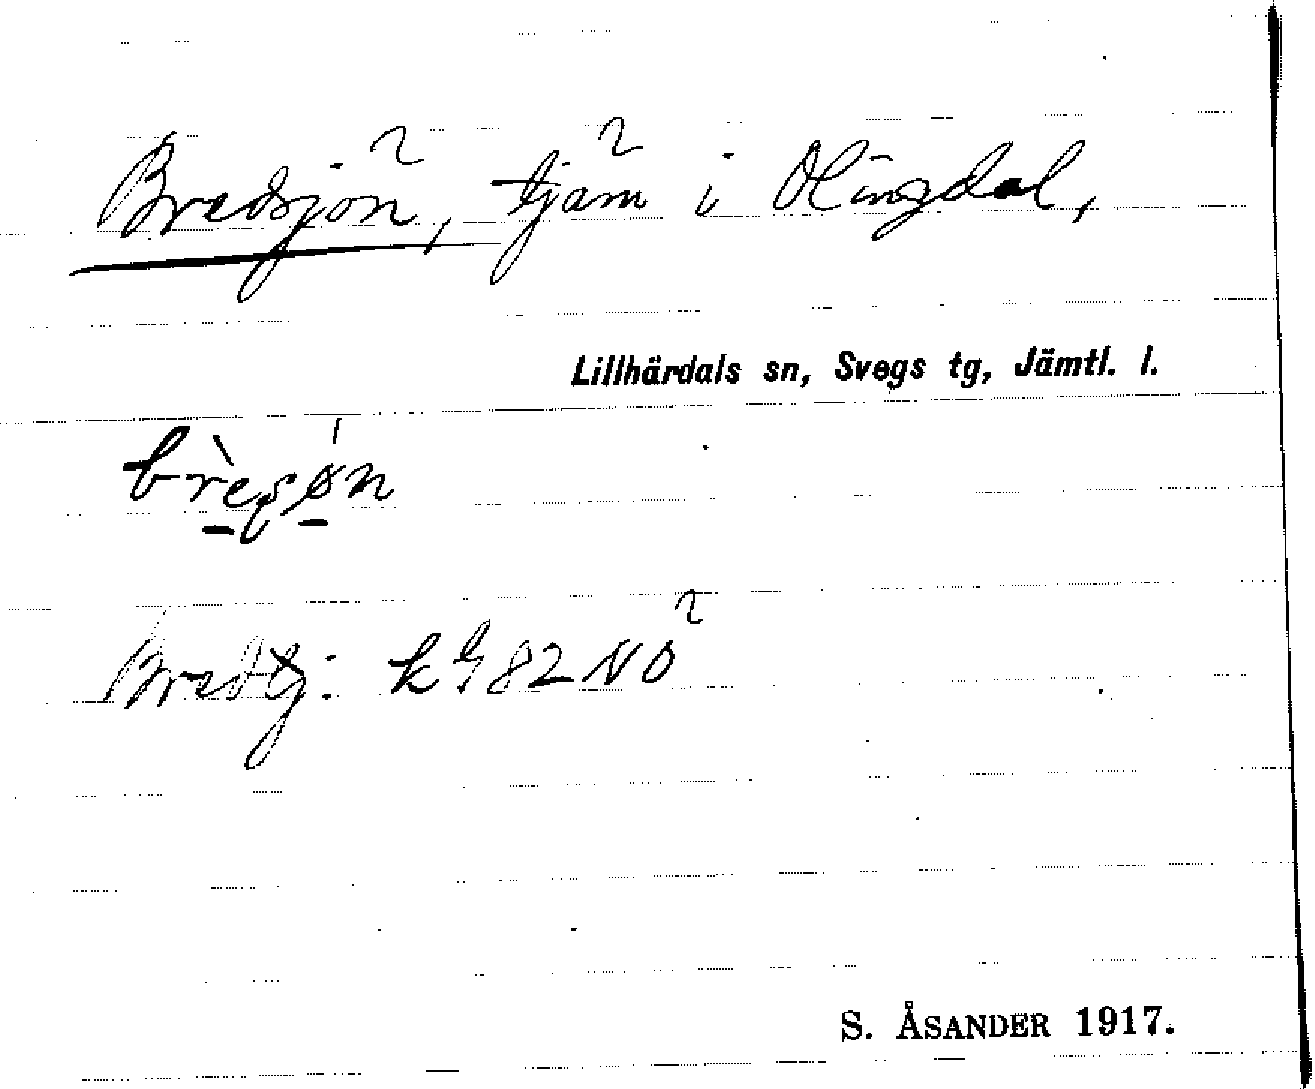 Bredsjön, tjärn i Olingdal,
Lillhärdals sn, Svegs tg, Jämtl. l.
Bredtj: kbl 82 NO
S. ÅSANDER 1917.